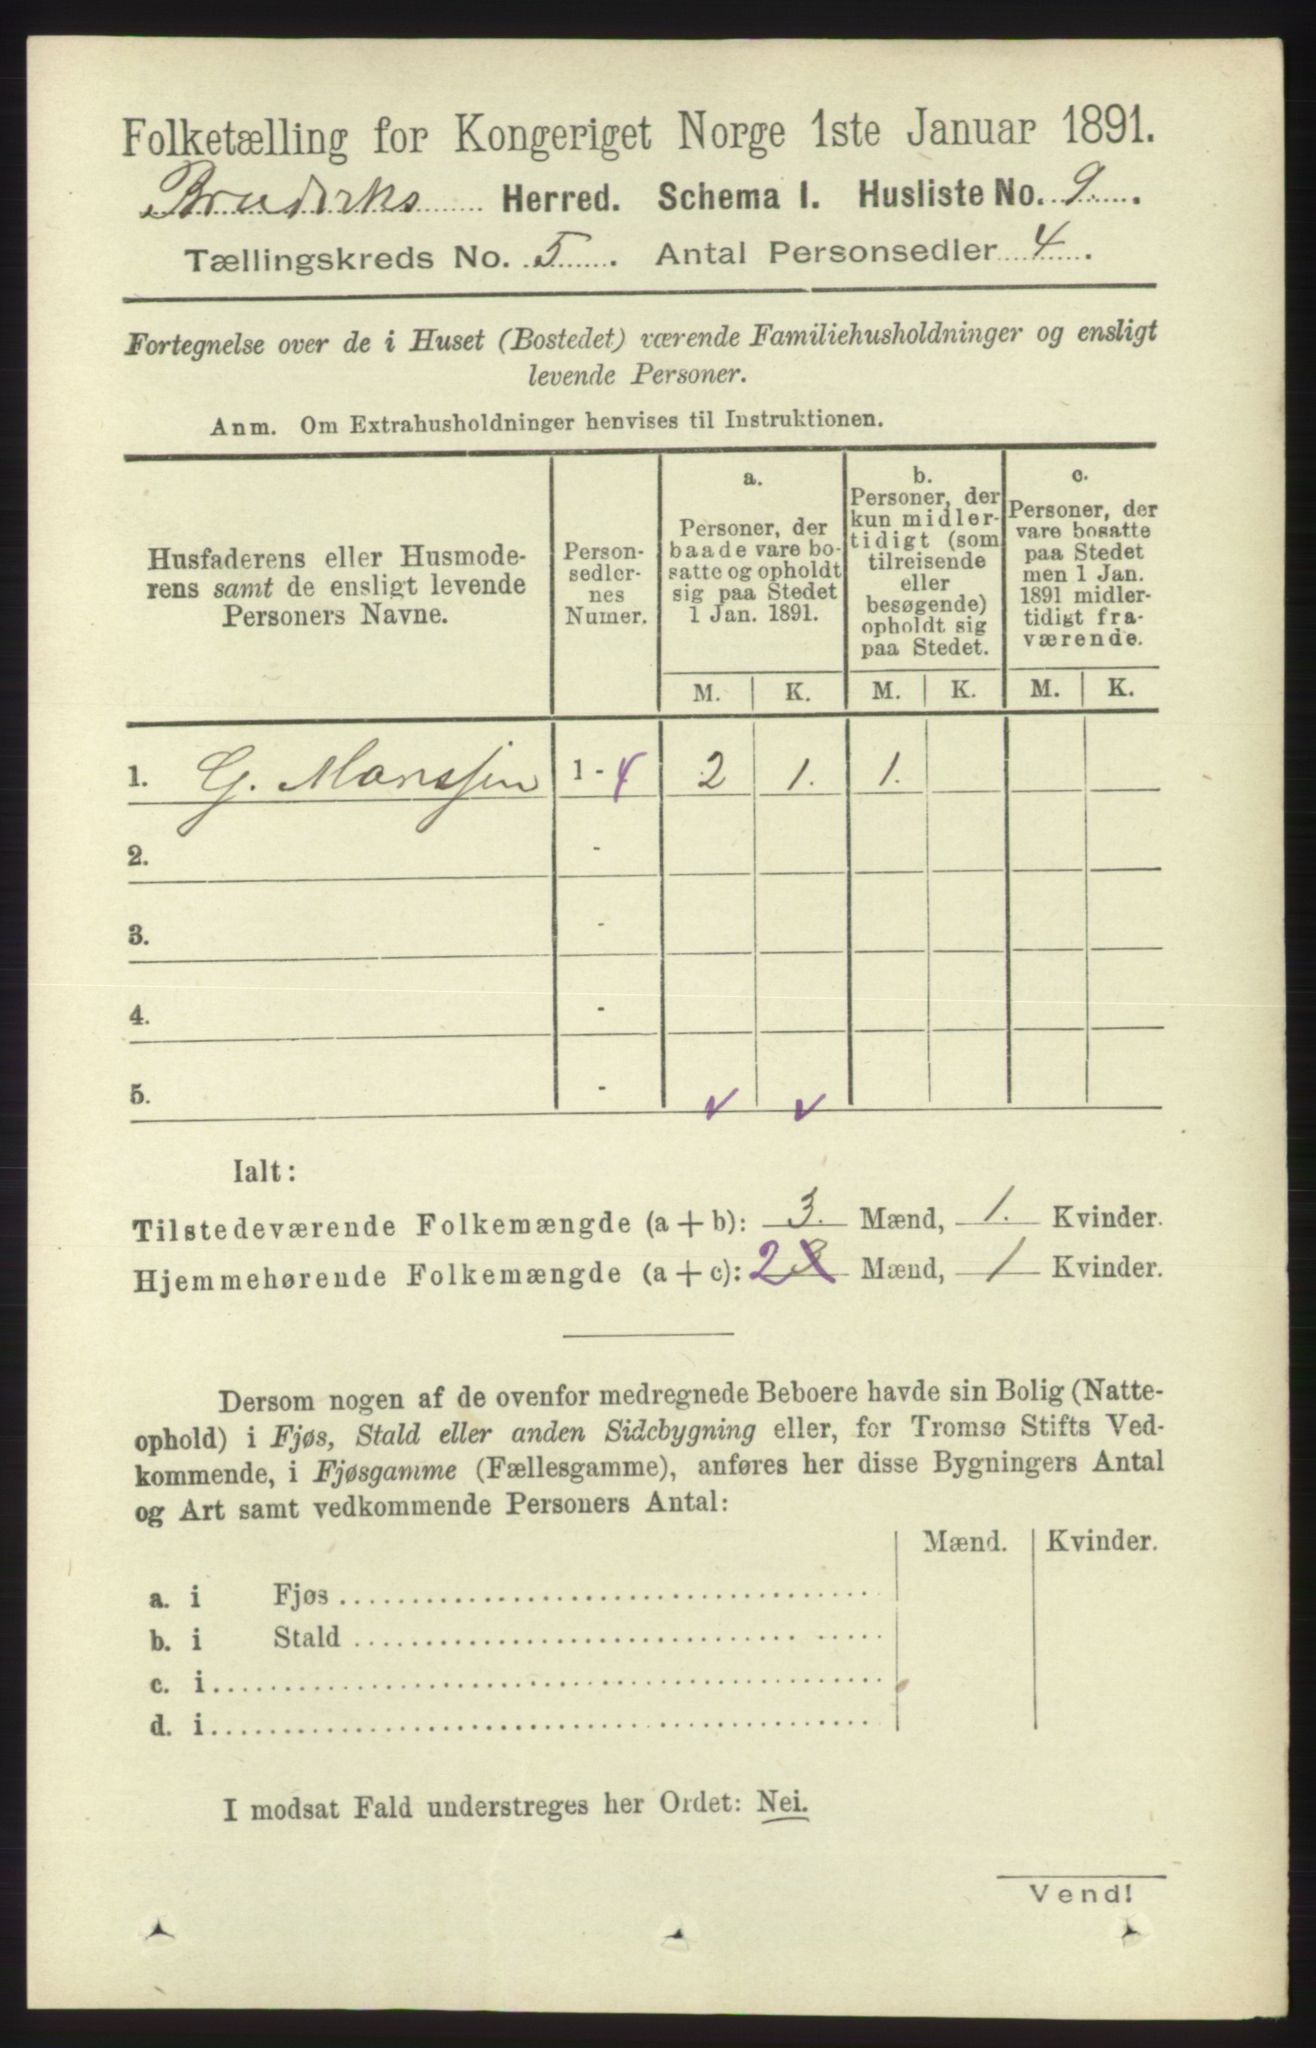 Folketælling for Kongeriget Norge 1ste Januar 1891.
Bruviks Herred. Schema I. Husliste No. 9.
Tællingskreds No. 5. Antal Personsedler 4.
Fortegnelse over de i Huset (Bostedet) værende Familiehusholdninger og ensligt
levende Personer.
Anm. Om Extrahusholdninger henvises til Instruktionen.
Husfaderens eller Husmode-
rens samt de ensligt levende
Personers Navne.
Person-
sedler-
nes
Numer.
a.
Personer, der
baade vare bo-
satte og opholdt
sig paa Stedet
1 Jan. 1891.
b.
Personer, der
kun midler-
tidigt (som
tilreisende
eller
besøgende)
opholdt sig
paa Stedet.
c.
Personer, der
vare bosatte
paa Stedet
men 1 Jan.
1891 midler-
tidigt fra-
værende.
M. K. M. K. M. K.
1. G. Monssen 1 - 4 2 1. 1.
2. -
3. -
4. -
5. -
✓ ✓
Ialt:
Tilstedeværende Folkemængde (a + b): 3. Mænd, 1. Kvinder.
Hjemmehørende Folkemængde (a + c): 2 3 Mænd, 1 Kvinder.
Dersom nogen af de ovenfor medregnede Beboere havde sin Bolig (Natte-
ophold) i Fjøs, Stald eller anden Sidebygning eller, for Tromsø Stifts Ved-
kommende, i Fjøsgamme (Fællesgamme), anføres her disse Bygningers Antal
og Art samt vedkommende Personers Antal:
Mænd. Kvinder.
a. i Fjøs
b. i Stald
c. i
d. i
I modsat Fald understreges her Ordet: Nei.
Vend!